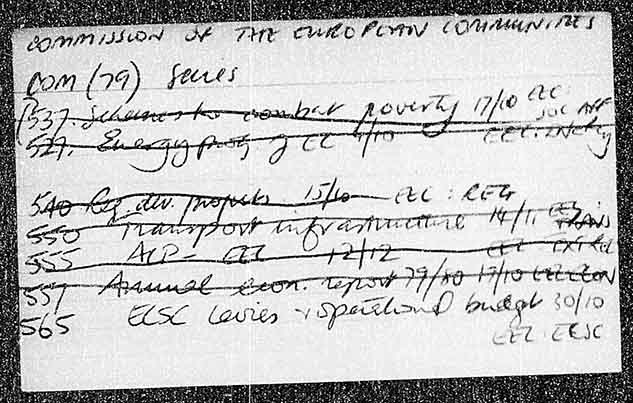 COMMISSION OF THE EUROPEAN COMMUNITIES
COM (79) Series
537. Schemes to combat poverty 17/10 EEC:
SOC AFF
529. Energy prog of EC 4/10 EEC: ENERGY
540 Reg. dev. projects 15/10 EEC: REG
550 Transport infrastructure 14/11 EEC: TRANS
555 ACP - EEC 12/12 EEC EXT REL
557 Annual econ. report 79/80 17/10 EEC ECON
565 ECSC levies + operational budget 30/10
EEC: ECSC